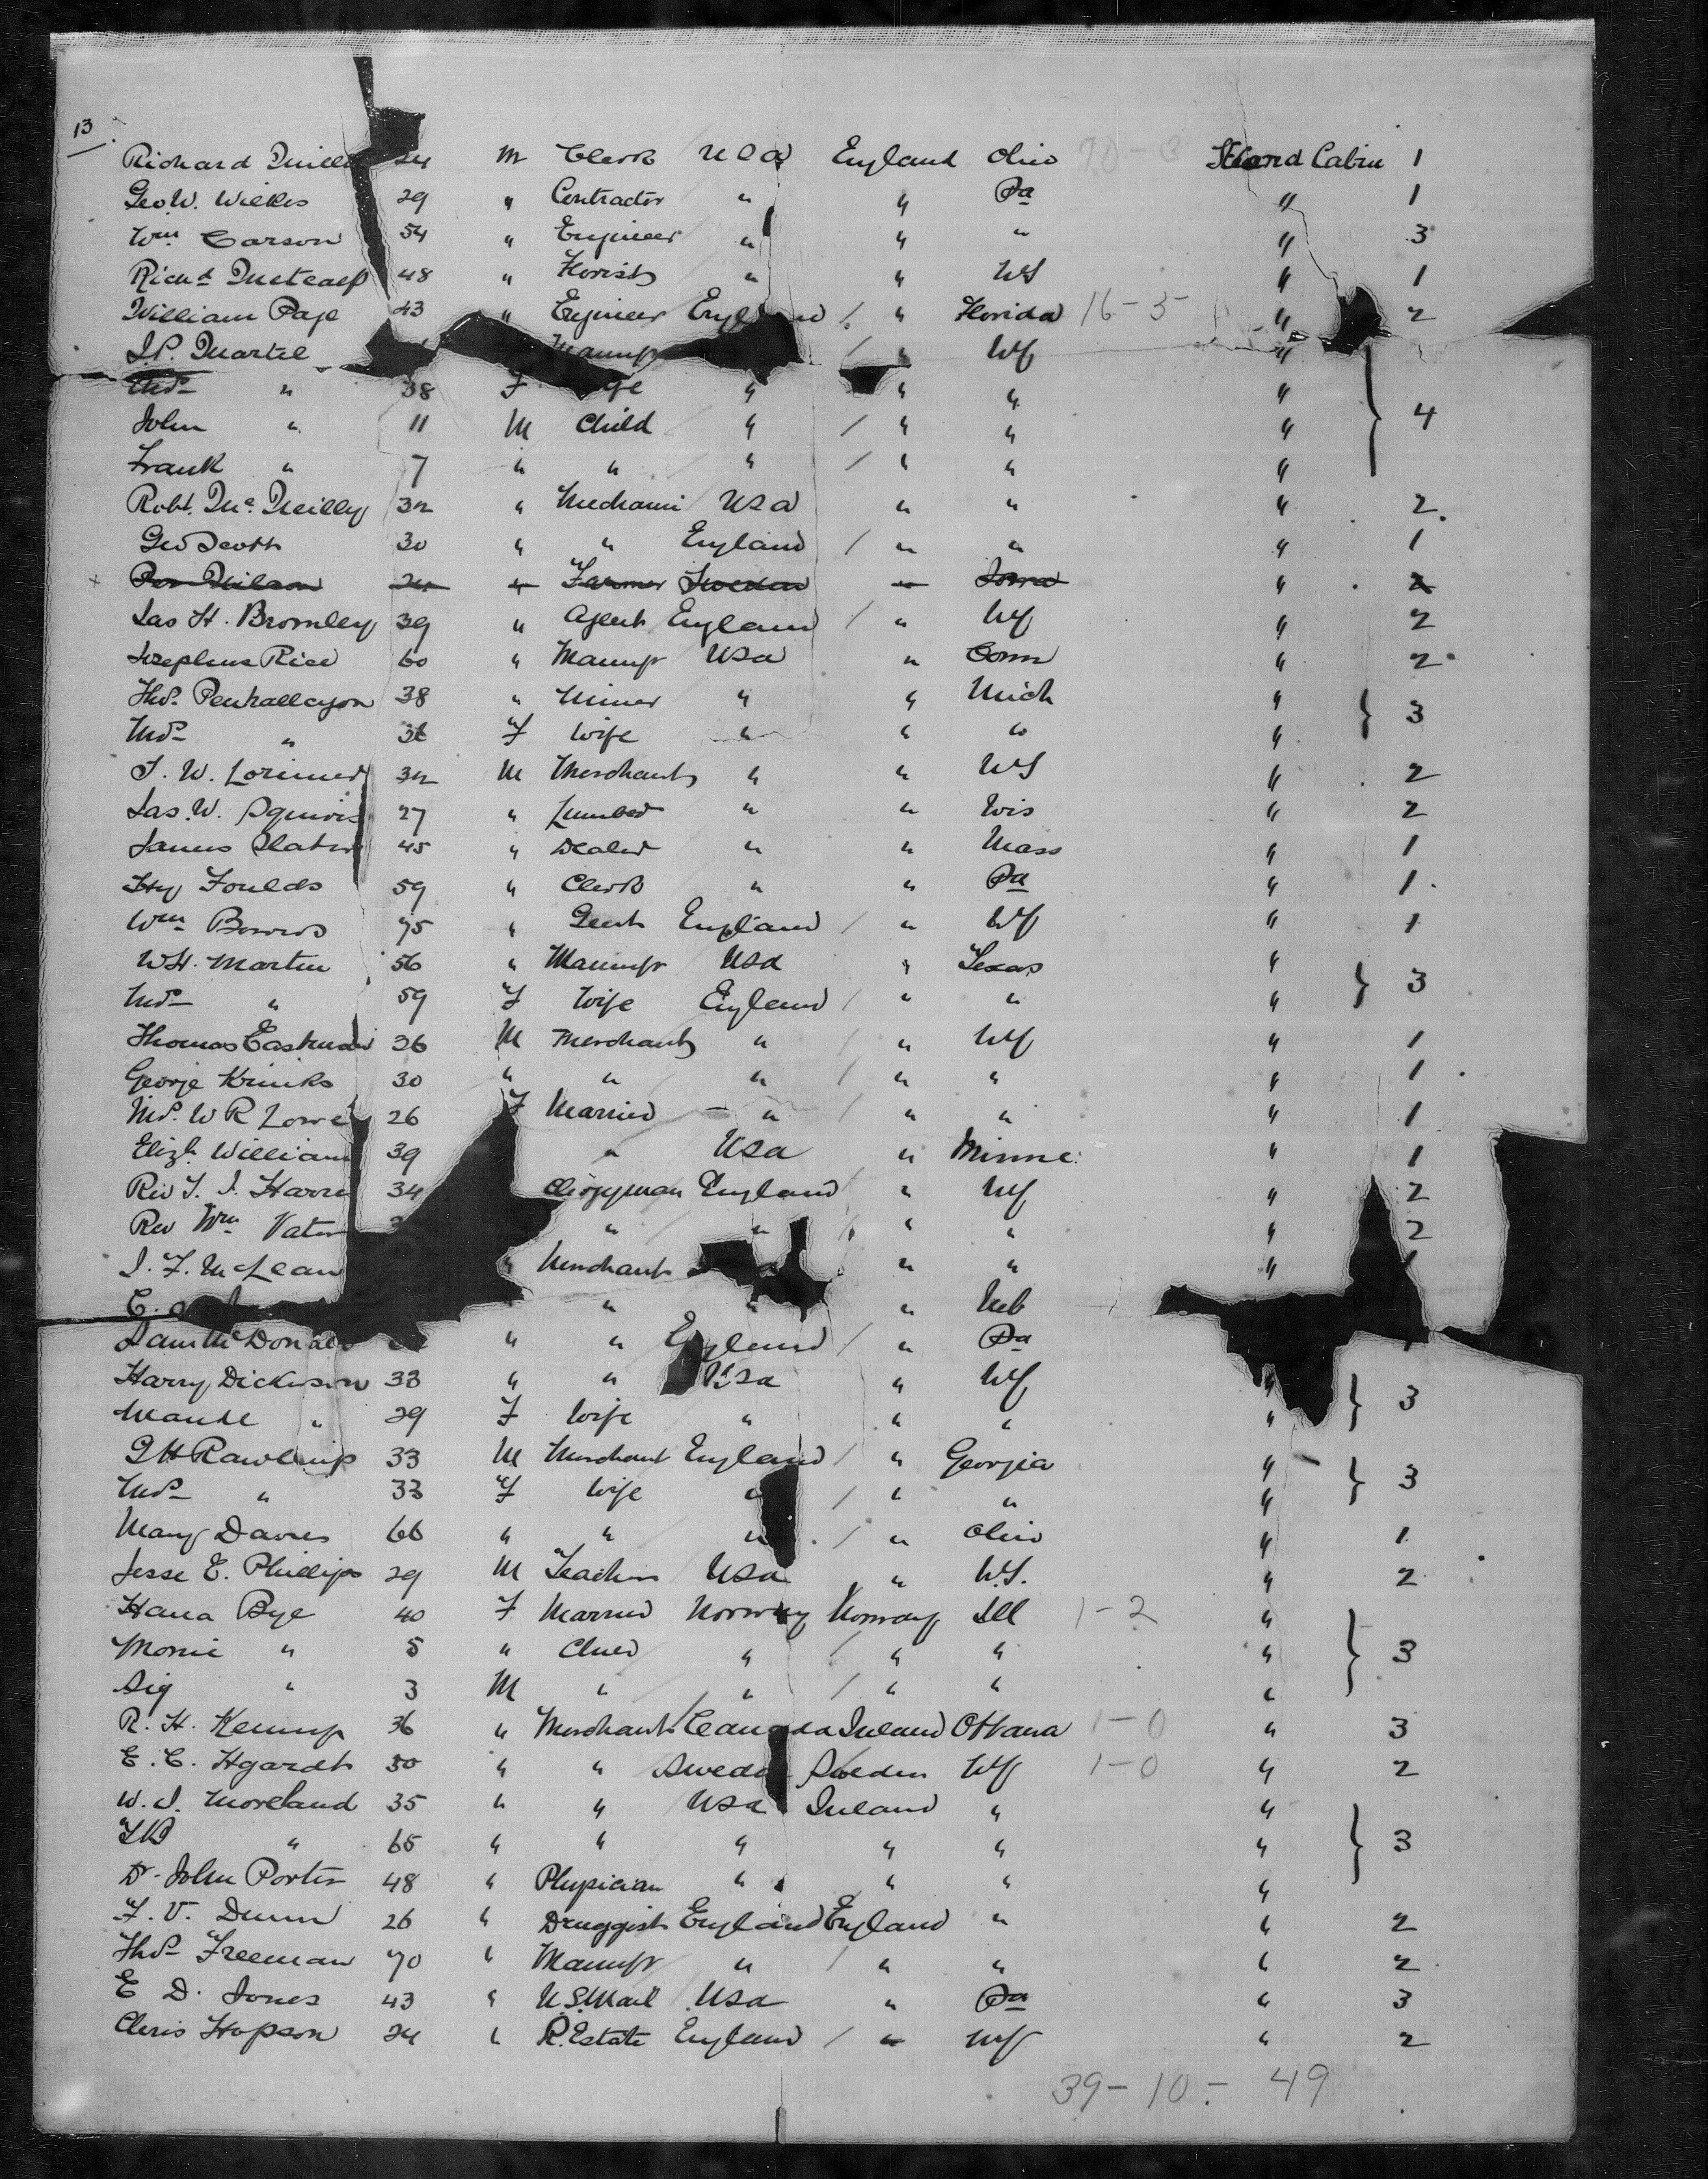 13
Richard 24 M Clerk USA England Ohio Second Cabin 1
Geo. W. Wilkes 29 " Contractor " " Pa " 1
Wm Carson 54 " Engineer " " " " 3
Richd Metcalf 48 " Florist " " NY " 1
William Page 43 " Engineer England / " Florida 16-5 " 2
J.P. Martel Manufr / " NY "
Mrs " 38 F " " " " 4
John " 11 M Child " / " " "
Frank " 7 " " " / " " "
Robt. Mc Neilly 32 " Mechanic USA " " " 2
Geo Scott 30 " " England / " " " 1
x Per Nilson 24 " Farmer Sweden " Iowa " 2
Jas H. Bromley 39 " Agent England / " NY " 2
Josephus Rice 60 " Manufr USA " Conn " 2
Thos. Penhallegon 38 " Miner " " Mich " 3
Mrs " 36 F Wife " " " "
J. W. Lorimer 32 M Merchant " " NY " 2
Jas. W. Squires 27 " Lumber " " Wis " 2
James Slater 45 " Dealer " " Mass " 1
Hy Foulds 59 " Clerk " " Pa " 1
Wm 75 " Gent England / " NY " 1
W.H. Martin 56 " Manufr USA " Texas " 3
Mrs " 59 F Wife England / " " "
Thomas Eastman 36 M Merchant " / " NY " 1
George 30 " " " / " " " 1
Mrs. W R Lowe 26 F Married " / " " " 1
Elizh. William 39 " USA " Minne " 1
Rev T. J. Harri 34 Clergyman England / " NY " 2
Rev Wm Vater " " / " " " 2
J. F. McLean " Merchant " " " 1
C. " " " Neb
Saml McDonald " " England / " Pa
Harry Dickinson 33 " " USA " NY " 3
Maude " 29 F Wife " " " "
J H Rawlings 33 M Merchant England / " Georgia " 3
Mrs " 33 F Wife " / " " "
Mary Davies 66 " " " / " Ohio " 1
Jesse E. Phillips 29 M Teacher USA " N.Y. " 2
Hana Bye 40 F Married Norway Norway Ill 1-2 " 3
Monie " 5 " Child " / " " "
Sig " 3 M " " / " " "
R. H. Kemp 36 " Merchant Canada Ireland Ottawa 1-0 " 3
E. C. Hgardt 50 " " Sweden Sweden NY 1-0 " 2
W. J. Moreland 35 " " USA Ireland " " 3
" 65 " " " " " "
Dr. John Porter 48 " Physician " " " "
F. V. Dunn 26 " Druggist England England " " 2
Thos Freeman 70 " Manufr " / " " " 2
E D. Jones 43 " U.S. Mail USA " Pa " 3
Chris Hopson 24 " R. Estate England / " NY " 2
39-10- 49